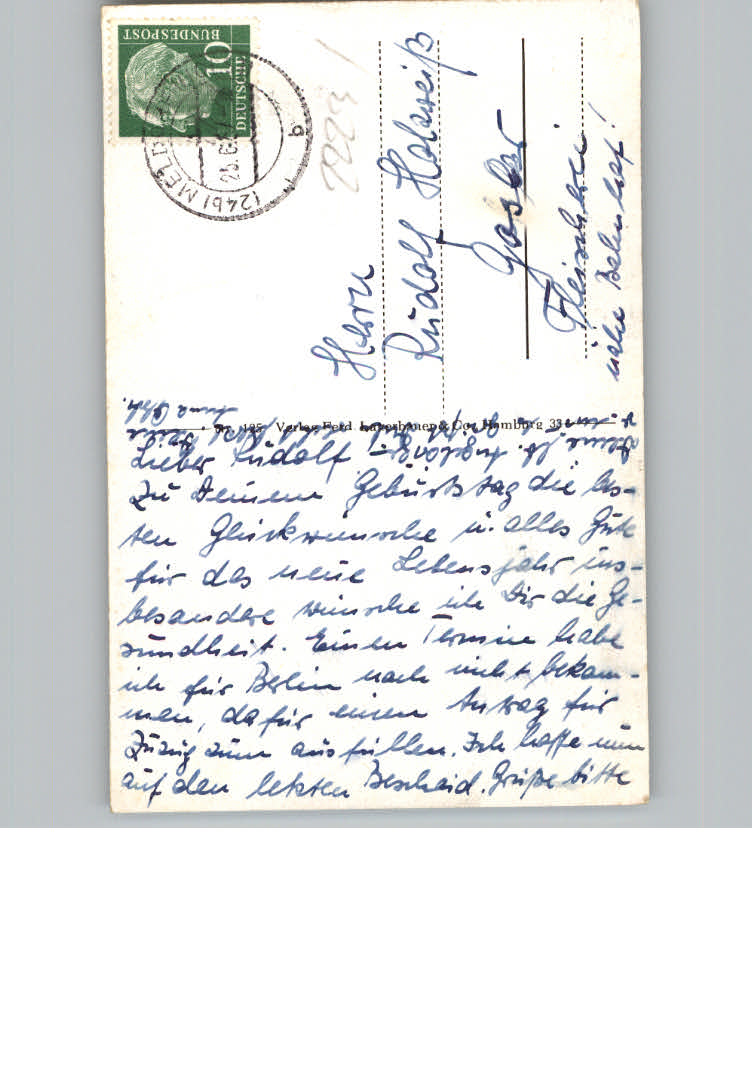 DEUTSCHE
BUNDESPOST
10
(24b) MELD
b
2223
Herrn
Rudolf Holzweiß
Goslar
Fleischerei
nähe Bahnhof!
Verlag Ferd. Lagerbauer & Co., Hamburg 33
Lieber Rudolf!
Zu Deinem Geburtstag die bes-
ten Glückwünsche u. alles Gute
für das neue Lebensjahr ins-
besondere wünsche ich Dir die Ge-
sundheit. Einen Termin habe
ich für Berlin noch nicht bekom-
men, dafür einen Antrag für
Zuzug zum ausfüllen. Ich hoffe nun
auf den letzten Bescheid. Grüße bitte
Anna